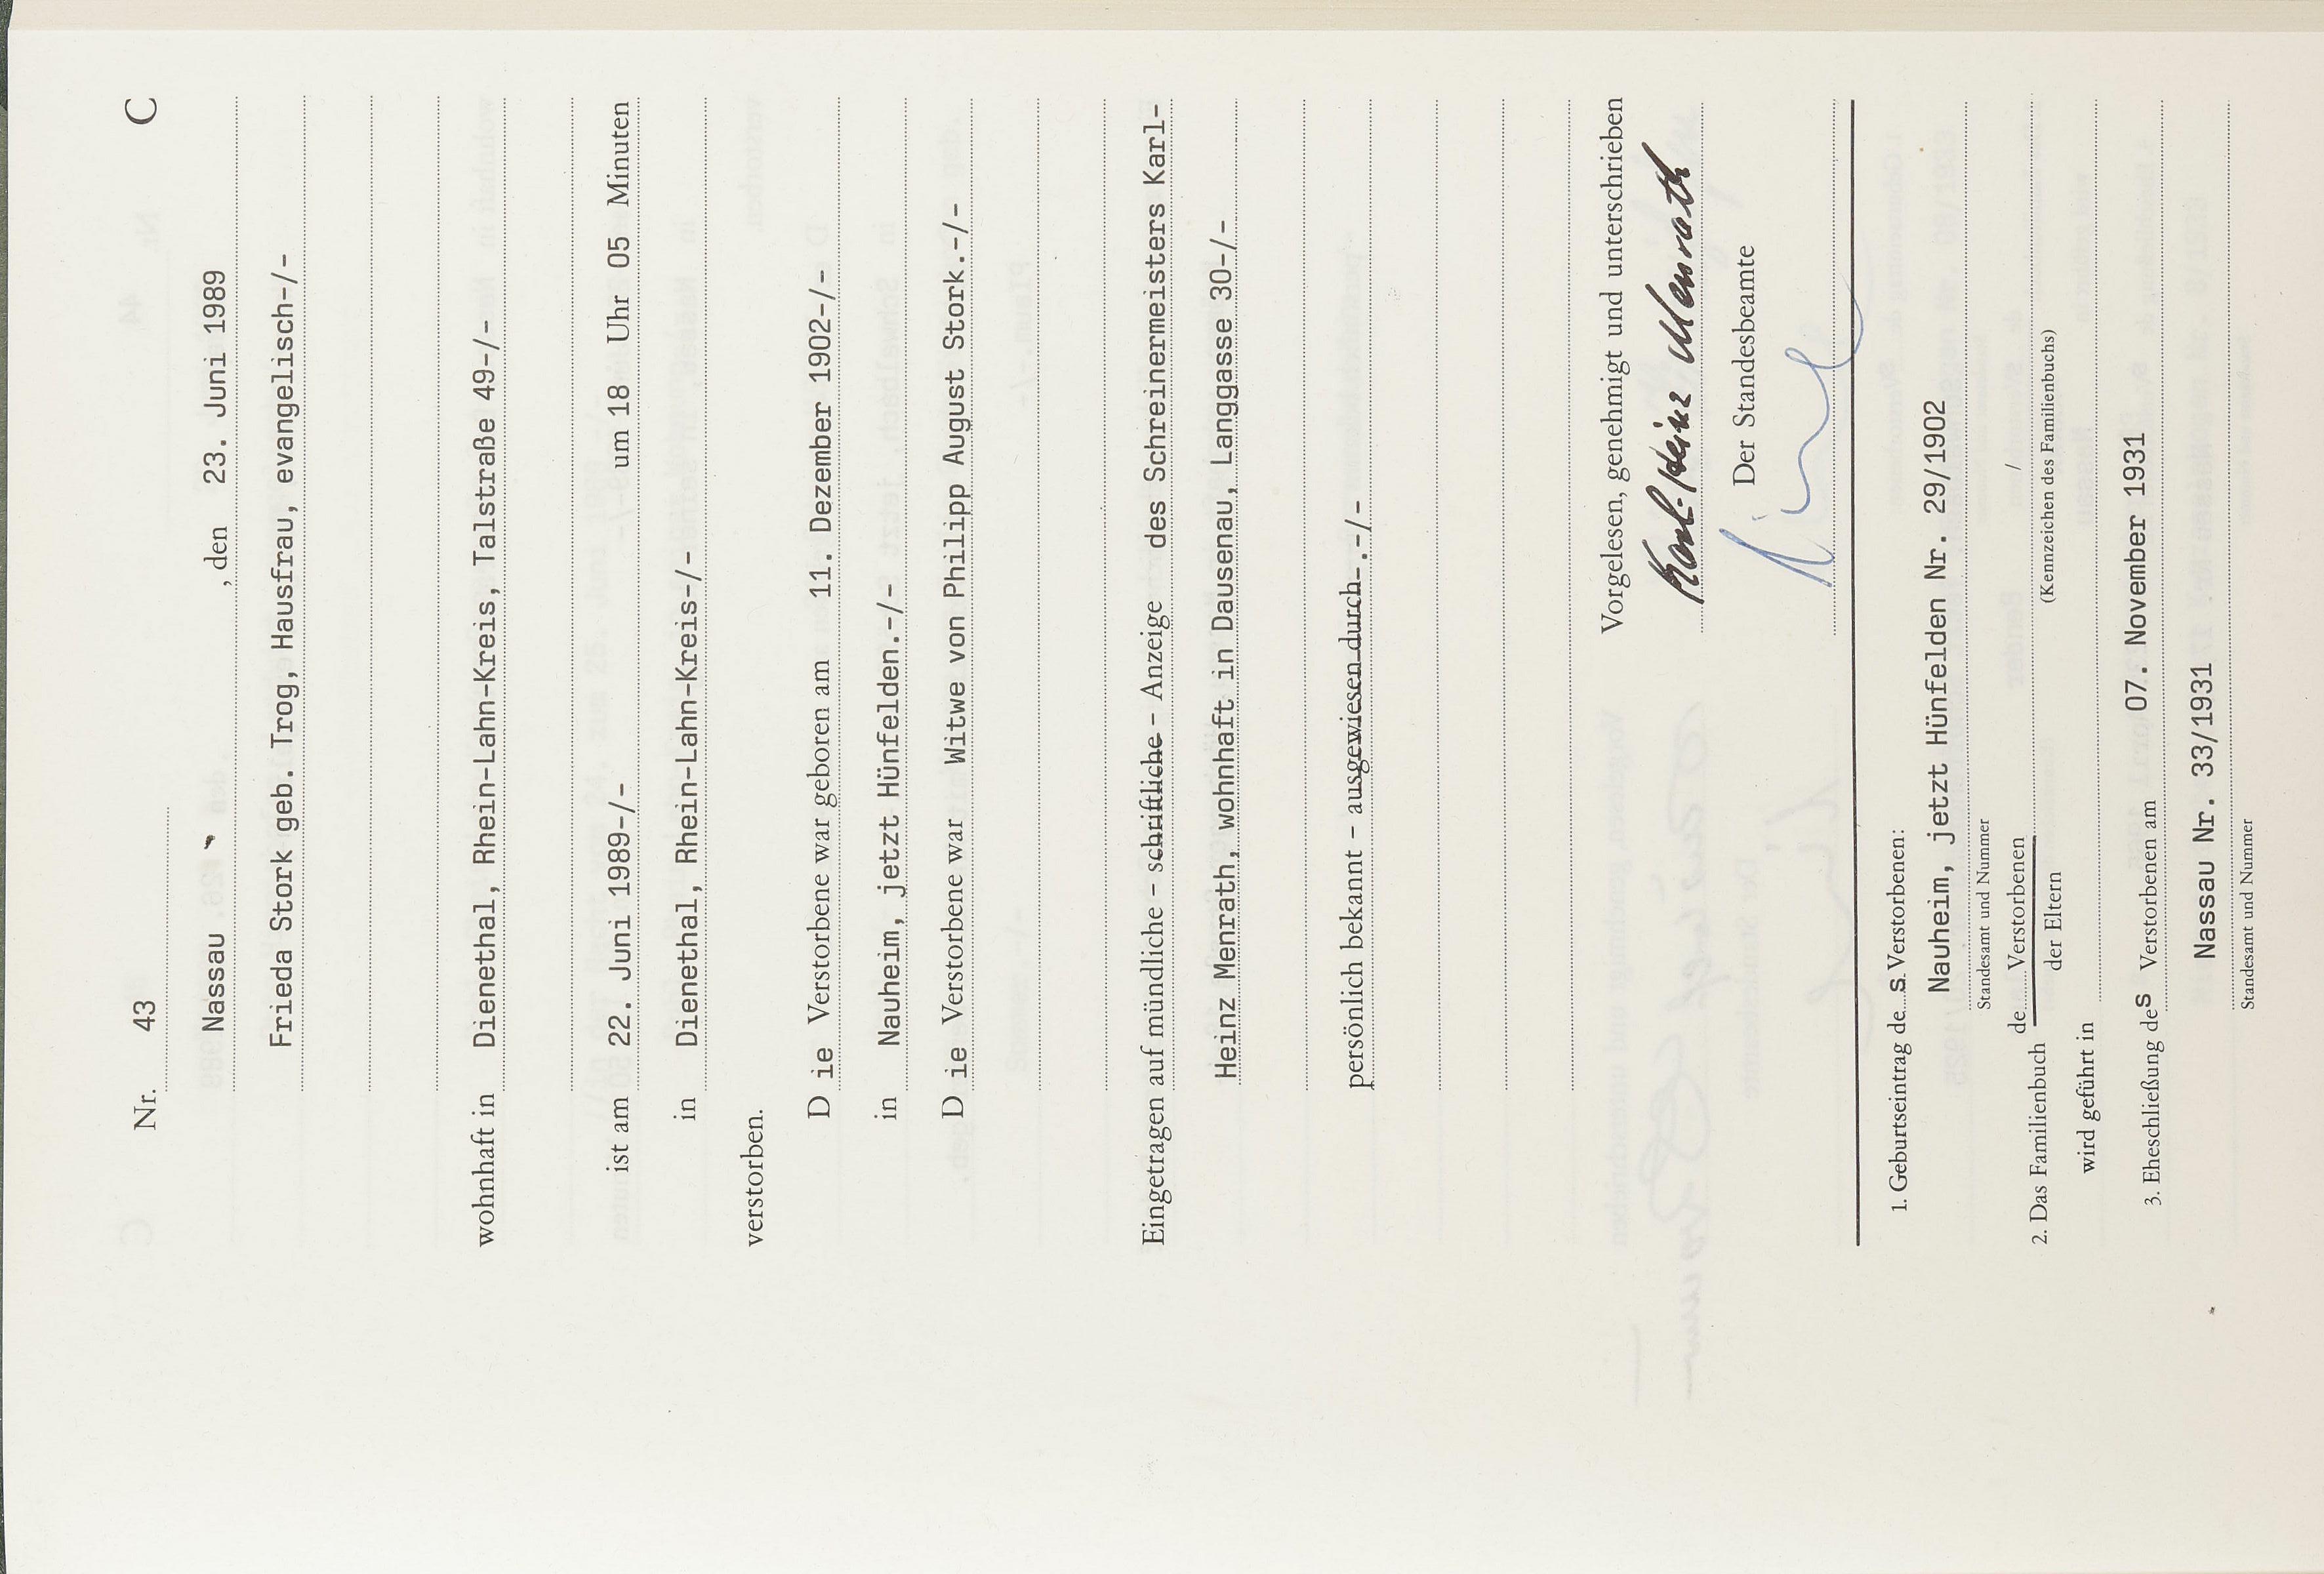 C
Nr. 43
Nassau , den 23. Juni 1989
Frieda Stork geb. Trog, Hausfrau, evangelisch-/-
wohnhaft in Dienethal, Rhein-Lahn-Kreis, Talstraße 49-/-
ist am 22. Juni 1989-/- um 18 Uhr 05 Minuten
in Dienethal, Rhein-Lahn-Kreis-/-
verstorben.
D ie Verstorbene war geboren am 11. Dezember 1902-/-
in Nauheim, jetzt Hünfelden.-/-
D ie Verstorbene war Witwe von Philipp August Stork.-/-
Eingetragen auf mündliche - schriftliche - Anzeige des Schreinermeisters Karl-
Heinz Menrath, wohnhaft in Dausenau, Langgasse 30-/-
persönlich bekannt - ausgewiesen durch-.-/-
Vorgelesen, genehmigt und unterschrieben
Karl-Heinz Menrath
Der Standesbeamte
1. Geburtseintrag de s Verstorbenen:
Nauheim, jetzt Hünfelden Nr. 29/1902
Standesamt und Nummer
2. Das Familienbuch de Verstorbenen /
der Eltern (Kennzeichen des Familienbuchs)
wird geführt in
3. Eheschließung des Verstorbenen am 07. November 1931
Nassau Nr. 33/1931
Standesamt und Nummer